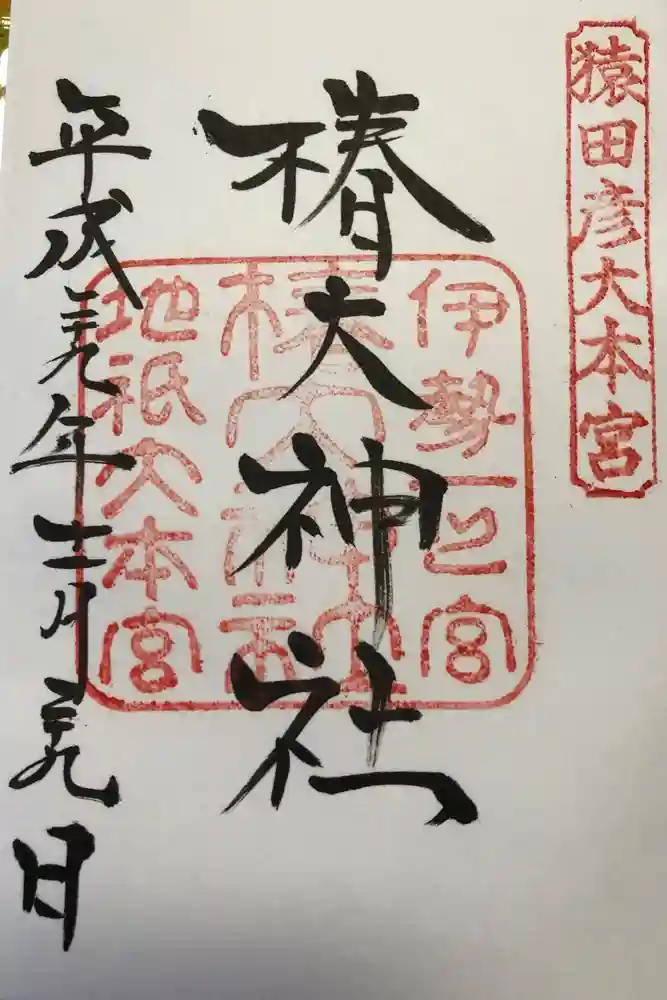 猿田彦大本宮
伊勢一之宮
椿大神社
椿大神社
地祇大本宮
平成二十九年十二月二十九日